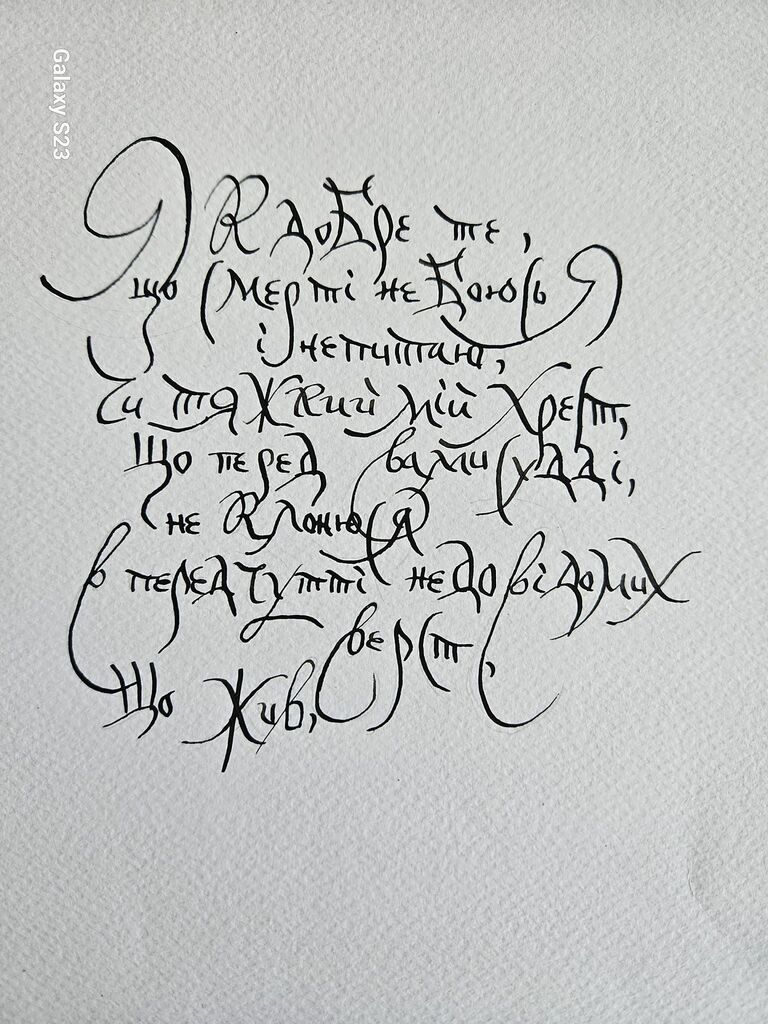 Galaxy S23
Як добре те,
що смерті не боюсь я
і не питаю,
Чи тяжкий мій хрест,
Що перед вами, судді,
не клонюся
в передчутті недовідомих
верст,
Що жив,